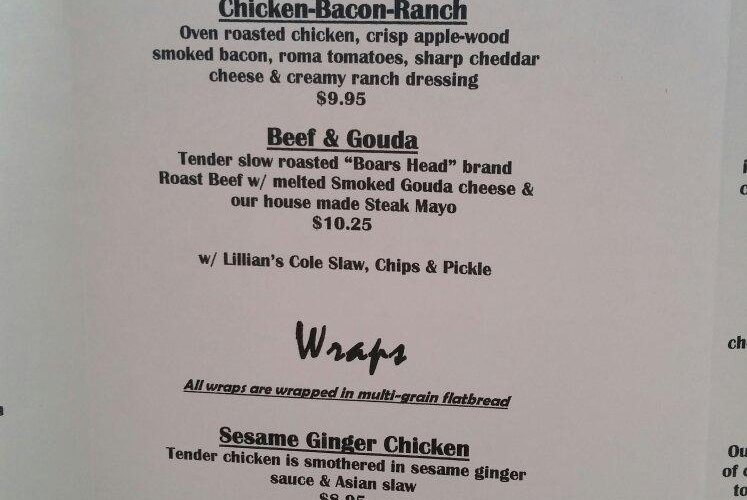 Chicken-Bacon-Ranch
Oven roasted chicken, crisp apple-wood
smoked bacon, roma tomatoes, sharp cheddar
cheese & creamy ranch dressing
$9.95
Beef & Gouda
Tender slow roasted “Boars Head” brand
Roast Beef w/ melted Smoked Gouda cheese &
our house made Steak Mayo
$10.25
w/ Lillian's Cole Slaw, Chips & Pickle
Wraps
All wraps are wrapped in multi-grain flatbread
Sesame Ginger Chicken
Tender chicken is smothered in sesame ginger
sauce & Asian slaw
$8.95
Ou
of
to